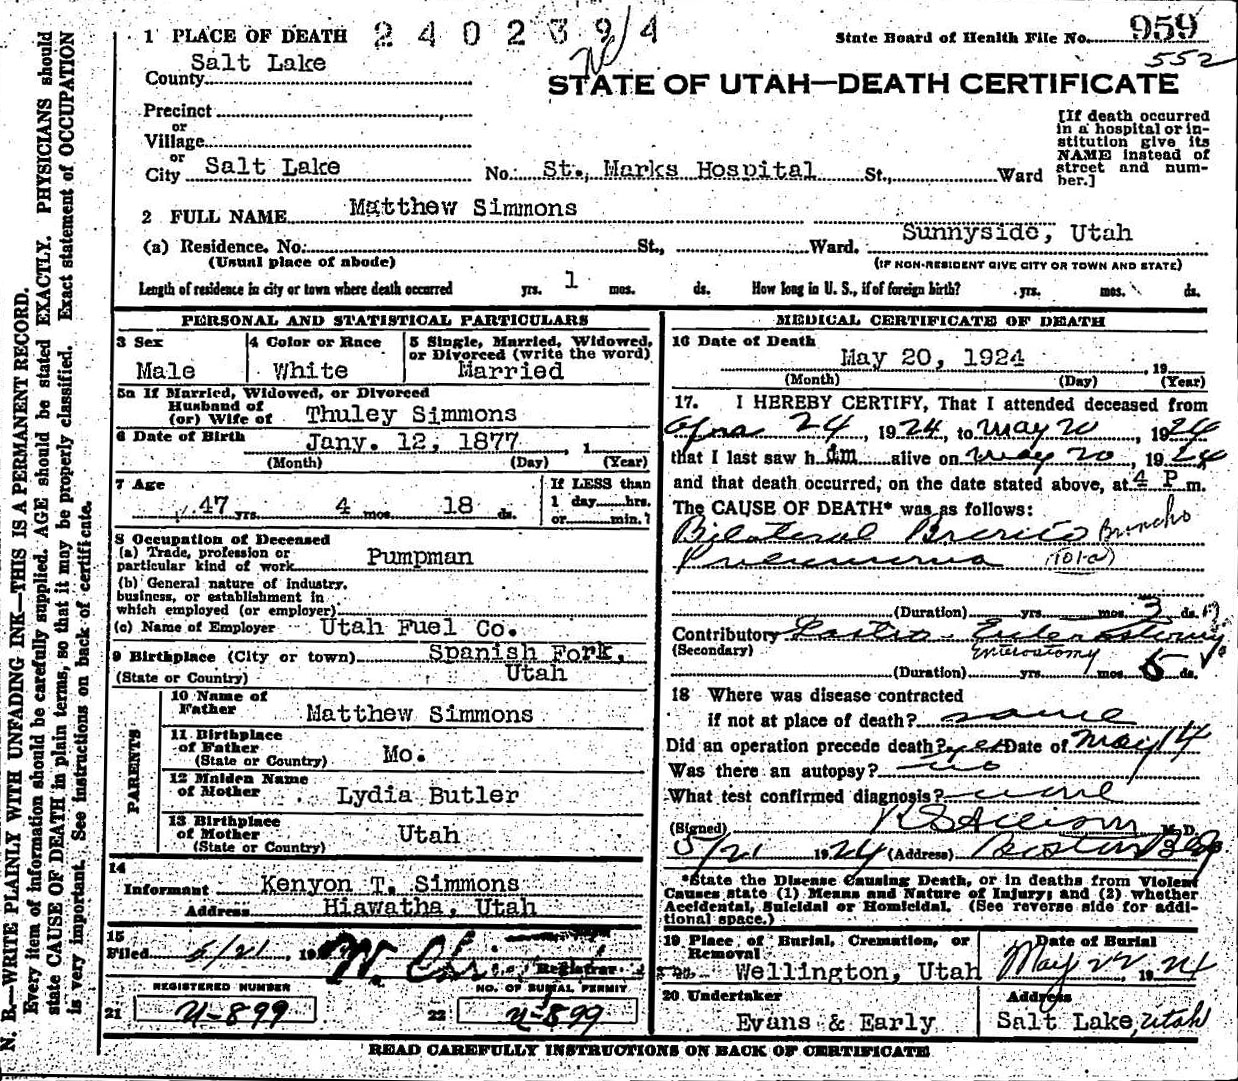 1 PLACE OF DEATH 2402394
State Board of Health File No. 959
552
County Salt Lake
STATE OF UTAH—DEATH CERTIFICATE
Precinct
or
Village
or
City Salt Lake No. St., Marks Hospital St., Ward
[If death occurred
in a hospital or in-
stitution give its
NAME instead of
street and num-
ber.]
2 FULL NAME Matthew Simmons
(a) Residence. No. St., Ward. Sunnyside, Utah
(Usual place of abode) (IF NON-RESIDENT GIVE CITY OR TOWN AND STATE)
Length of residence in city or town where death occurred yrs. 1 mos. ds. How long in U. S., if of foreign birth? yrs. mos. ds.
PERSONAL AND STATISTICAL PARTICULARS
3 Sex
Male
4 Color or Race
White
5 Single, Married, Widowed,
or Divorced (write the word)
Married
5a If Married, Widowed, or Divorced
Husband of
(or) Wife of Thuley Simmons
6 Date of Birth Jany. 12, 1877 , 1
(Month) (Day) (Year)
7 Age
47 yrs. 4 mos. 18 ds.
If LESS than
1 day hrs.
or min.?
8 Occupation of Deceased
(a) Trade, profession or
particular kind of work Pumpman
(b) General nature of industry,
business, or establishment in
which employed (or employer)
(c) Name of Employer Utah Fuel Co.
9 Birthplace (City or town) Spanish Fork,
(State or Country) Utah
PARENTS
10 Name of
Father Matthew Simmons
11 Birthplace
of Father
(State or Country) Mo.
12 Maiden Name
of Mother Lydia Butler
13 Birthplace
of Mother
(State or Country) Utah
14
Informant Kenyon T. Simmons
Address Hiawatha, Utah
15
Filed 5/21, 19
Registrar
REGISTERED NUMBER
21 U-899
NO. OF BURIAL PERMIT
22 U-899
MEDICAL CERTIFICATE OF DEATH
16 Date of Death
May 20, 1924 , 19
(Month) (Day) (Year)
17. I HEREBY CERTIFY, That I attended deceased from
24, 1924, to May 20, 1924
that I last saw h im alive on May 20, 1924
and that death occurred, on the date stated above, at 4 P m.
The CAUSE OF DEATH* was as follows:
Bilateral Broncho
Pneumonia (101-a)
(Duration) yrs. mos. 3 ds.
Contributory Gastro-Enterostomy
(Secondary) Enterostomy
(Duration) yrs. mos. 6 ds.
18 Where was disease contracted
if not at place of death? same
Did an operation precede death? yes Date of May 14
Was there an autopsy? no
What test confirmed diagnosis? none
(Signed) M. D.
5/21 1924 (Address) Boston Bldg
*State the Disease Causing Death, or in deaths from Violent
Causes state (1) Means and Nature of Injury; and (2) whether
Accidental, Suicidal or Homicidal. (See reverse side for addi-
tional space.)
19 Place of Burial, Cremation, or
Removal
Wellington, Utah
Date of Burial
May 22, 1924
20 Undertaker
Evans & Early
Address
Salt Lake, Utah
READ CAREFULLY INSTRUCTIONS ON BACK OF CERTIFICATE
N. B.—WRITE PLAINLY WITH UNFADING INK—THIS IS A PERMANENT RECORD.
Every item of information should be carefully supplied. AGE should be stated EXACTLY. PHYSICIANS should
state CAUSE OF DEATH in plain terms, so that it may be properly classified. Exact statement of OCCUPATION
is very important. See instructions on back of certificate.